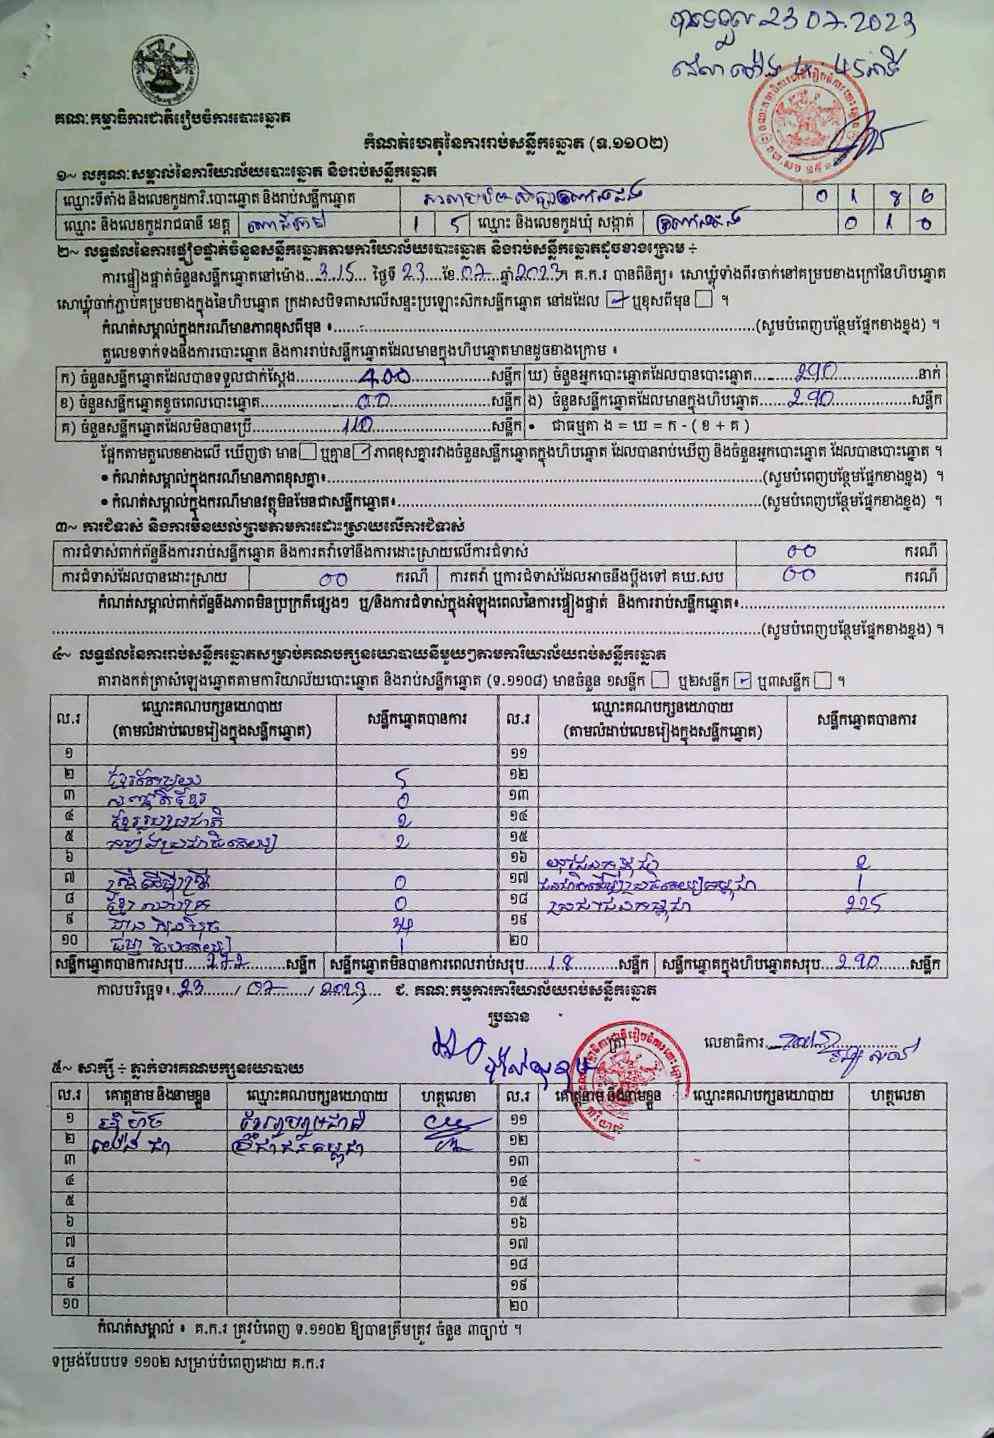 23 07.2023
45 នាទី
គណៈកម្មាធិការជាតិរៀបចំការបោះឆ្នោត
កំណត់ហេតុនៃការរាប់សន្លឹកឆ្នោត (ទ.១១០២)
១~ លក្ខណៈសម្គាល់នៃការិយាល័យបោះឆ្នោត និងរាប់សន្លឹកឆ្នោត
ឈ្មោះទីតាំង និងលេខកូដការិ.បោះឆ្នោត និងរាប់សន្លឹកឆ្នោត 0 1 8 6
ឈ្មោះ និងលេខកូដរាជធានី ខេត្ត ពោធិ៍សាត់ 1 5 ឈ្មោះ និងលេខកូដឃុំ សង្កាត់ 0 1 0
២~ លទ្ធផលនៃការផ្ទៀងផ្ទាត់ចំនួនសន្លឹកឆ្នោតតាមការិយាល័យបោះឆ្នោត និងរាប់សន្លឹកឆ្នោតដូចខាងក្រោម ÷
ការផ្ទៀងផ្ទាត់ចំនួនសន្លឹកឆ្នោតនៅម៉ោង 3.15 ថ្ងៃទី 23 ខែ 07 ឆ្នាំ 2023 គ.ក.រ បានពិនិត្យ៖ សោឃ្លុំទាំងពីរចាក់នៅគម្របខាងក្រៅនៃហិបឆ្នោត
សោឃ្លុំចាក់ភ្ជាប់គម្របខាងក្នុងនៃហិបឆ្នោត ក្រដាសបិទពាសលើសន្ទះប្រឡោះស៊កសន្លឹកឆ្នោត នៅដដែល ☑ ឬខុសពីមុន ☐ ។
កំណត់សម្គាល់ក្នុងករណីមានភាពខុសពីមុន ៖ (សូមបំពេញបន្ថែមផ្នែកខាងខ្នង) ។
តួលេខទាក់ទងនឹងការបោះឆ្នោត និងការរាប់សន្លឹកឆ្នោតដែលមានក្នុងហិបឆ្នោតមានដូចខាងក្រោម ៖
ក) ចំនួនសន្លឹកឆ្នោតដែលបានទទួលជាក់ស្តែង 400 សន្លឹក ឃ) ចំនួនអ្នកបោះឆ្នោតដែលបានបោះឆ្នោត 290 នាក់
ខ) ចំនួនសន្លឹកឆ្នោតខូចពេលបោះឆ្នោត 00 សន្លឹក ង) ចំនួនសន្លឹកឆ្នោតដែលមានក្នុងហិបឆ្នោត 290 សន្លឹក
គ) ចំនួនសន្លឹកឆ្នោតដែលមិនបានប្រើ 110 សន្លឹក • ជាធម្មតា ង = ឃ = ក - ( ខ + គ )
ផ្អែកតាមតួលេខខាងលើ ឃើញថា មាន ☐ ឬគ្មាន ☑ ភាពខុសគ្នារវាងចំនួនសន្លឹកឆ្នោតក្នុងហិបឆ្នោត ដែលបានរាប់ឃើញ និងចំនួនអ្នកបោះឆ្នោត ដែលបានបោះឆ្នោត ។
• កំណត់សម្គាល់ក្នុងករណីមានភាពខុសគ្នា៖ (សូមបំពេញបន្ថែមផ្នែកខាងខ្នង) ។
• កំណត់សម្គាល់ក្នុងករណីមានវត្ថុមិនមែនជាសន្លឹកឆ្នោត៖ (សូមបំពេញបន្ថែមផ្នែកខាងខ្នង) ។
៣~ ការជំទាស់ និងការមិនយល់ព្រមតាមការដោះស្រាយលើការជំទាស់
ការជំទាស់ពាក់ព័ន្ធនឹងការរាប់សន្លឹកឆ្នោត និងការតវ៉ាទៅនឹងការដោះស្រាយលើការជំទាស់ 00 ករណី
ការជំទាស់ដែលបានដោះស្រាយ 00 ករណី ការតវ៉ា ឬការជំទាស់ដែលអាចនឹងប្តឹងទៅ គឃ.សប 00 ករណី
កំណត់សម្គាល់ពាក់ព័ន្ធនឹងភាពមិនប្រក្រតីផ្សេងៗ ឬ/និងការជំទាស់ក្នុងអំឡុងពេលនៃការផ្ទៀងផ្ទាត់ និងការរាប់សន្លឹកឆ្នោត៖
(សូមបំពេញបន្ថែមផ្នែកខាងខ្នង) ។
៤~ លទ្ធផលនៃការរាប់សន្លឹកឆ្នោតសម្រាប់គណបក្សនយោបាយនីមួយៗតាមការិយាល័យរាប់សន្លឹកឆ្នោត
តារាងកត់ត្រាសំឡេងឆ្នោតតាមការិយាល័យបោះឆ្នោត និងរាប់សន្លឹកឆ្នោត (ទ.១១០៨) មានចំនួន ១សន្លឹក ☐ ឬ២សន្លឹក ☑ ឬ៣សន្លឹក ☐ ។
ល.រ ឈ្មោះគណបក្សនយោបាយ (តាមលំដាប់លេខរៀងក្នុងសន្លឹកឆ្នោត) សន្លឹកឆ្នោតបានការ ល.រ ឈ្មោះគណបក្សនយោបាយ (តាមលំដាប់លេខរៀងក្នុងសន្លឹកឆ្នោត) សន្លឹកឆ្នោតបានការ
១ ១១
២ 5 ១២
៣ 0 ១៣
៤ ខ្មែររួបរួមជាតិ 2 ១៤
៥ 2 ១៥
៦ ១៦ 2
៧ 0 ១៧ 1
៨ 0 ១៨ ប្រជាជនកម្ពុជា 225
៩ ១៩
១០ 1 ២០
សន្លឹកឆ្នោតបានការសរុប 272 សន្លឹក សន្លឹកឆ្នោតមិនបានការពេលរាប់សរុប 18 សន្លឹក សន្លឹកឆ្នោតក្នុងហិបឆ្នោតសរុប 290 សន្លឹក
កាលបរិច្ឆេទ៖ 23 / 07 / 2023 ជ. គណៈកម្មការការិយាល័យរាប់សន្លឹកឆ្នោត
ប្រធាន
លេខាធិការ
៥~ សាក្សី ÷ ភ្នាក់ងារគណបក្សនយោបាយ
ល.រ គោត្តនាម និងនាមខ្លួន ឈ្មោះគណបក្សនយោបាយ ហត្ថលេខា ល.រ គោត្តនាម និងនាមខ្លួន ឈ្មោះគណបក្សនយោបាយ ហត្ថលេខា
១ ខ្មែររួបរួមជាតិ ១១
២ ប្រជាជនកម្ពុជា ១២
៣ ១៣
៤ ១៤
៥ ១៥
៦ ១៦
៧ ១៧
៨ ១៨
៩ ១៩
១០ ២០
កំណត់សម្គាល់ ៖ គ.ក.រ ត្រូវបំពេញ ទ.១១០២ ឱ្យបានត្រឹមត្រូវ ចំនួន ៣ច្បាប់ ។
ទម្រង់បែបបទ ១១០២ សម្រាប់បំពេញដោយ គ.ក.រ